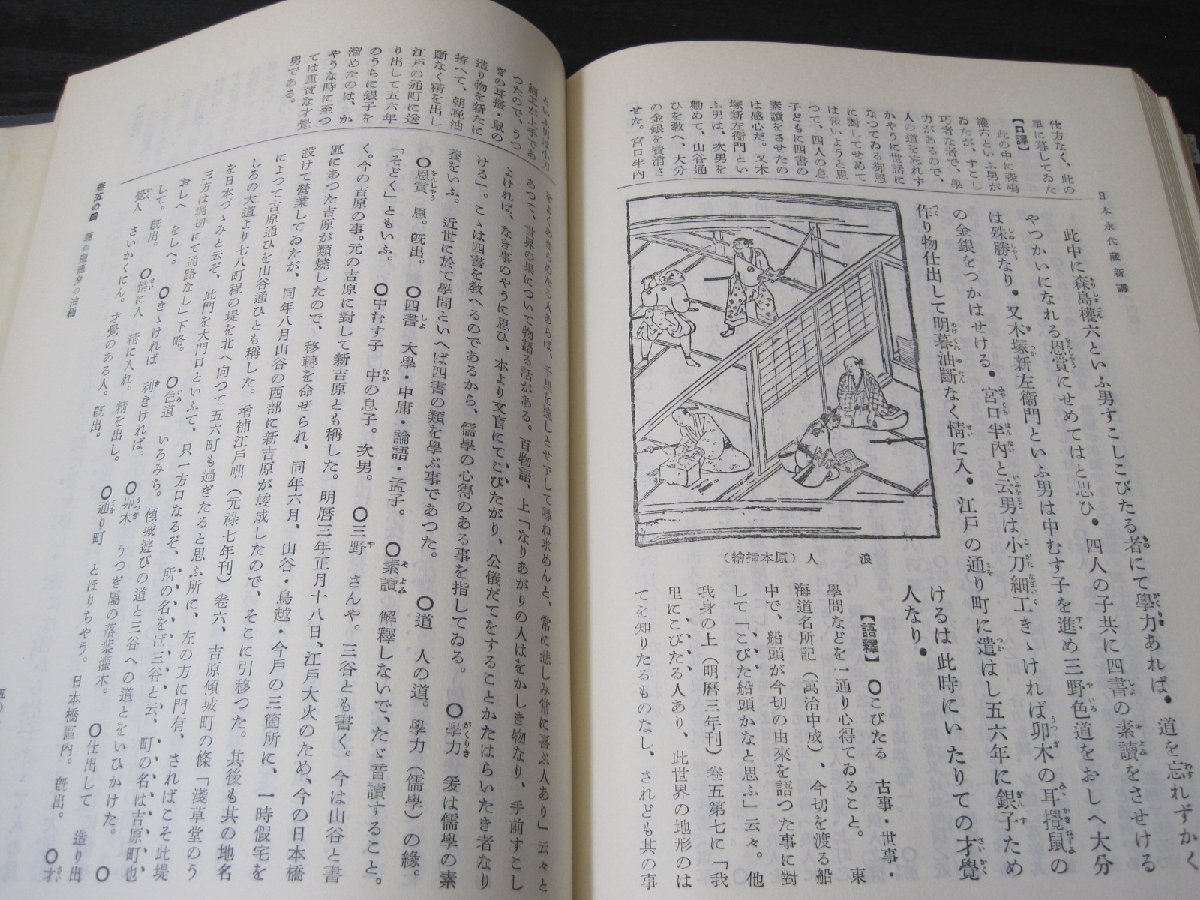 日本永代藏新講
【口譯】
仕方なく、此の
里に暮してゐた
此の中に森島
權六といふ男が
ゐたが、すこし
巧者な者で、學
力があるので、
人の道を忘れず
かやうに世話に
なつてゐる御恩
に對してせめて
は報いようと思
つて、四人の息
子どもに四書の
素讀をさせたの
は感心だ。又木
塚新左衞門とい
ふ男は、次男を
勸めて、山谷通
ひを敎へ、大分
の金銀を費消さ
せた。宮口半內
此中に森島權六といふ男すこしこびたる者にて學力あれば・道を忘れずかく
やつかいになれる恩賞にせめてはと思ひ・四人の子共に四書の素讀をさせける
は殊勝なり・又木塚新左衞門といふ男は中むす子を進め三野色道をおしへ大分
の金銀をつかはせける・宮口半內と云男は小刀細工きゝければ卯木の耳攪鼠の
作り物仕出して明暮油斷なく情に入・江戶の通り町に遣はし五六年に銀子ため
けるは此時にいたりての才覺
人なり・
浪人（原本揷繪）
【語釋】 〇こびたる 古事・世事・
學問などを一通り心得てゐること。東
海道名所記（萬治中成）、今切を渡る船
中で、船頭が今切の由來を語つた事に對
して「こびた船頭かなと思ふ」云々。他
我身の上（明曆三年刊）卷五第七に「我
里にこびたる人あり、此世界の地形のは
てを知りたるものなし、されども其の事
つたので、うつ
ぎの耳搔・鼠の
造り物を新たに
拵へて、朝晚油
斷なく精を出し
江戶の通町に送
り出して五六年
のうちに銀子を
溜めたのは、か
やうな時に至つ
ては重寶な才覺
男である。
あつて、世界の果について物語る話がある。百物語、上「なりあがりの人はをかしき物なり、手前すこし
よければ、なき事のやうに思ひ、本より文盲にてこびたがり、公儀だてをすることかたはらいたき者なり
ける」。こゝは四書を敎へるのであるから、儒學の心得のある事を指してゐる。 〇學力 爰は儒學の素
養をいふ。近世に於て學問といへば四書の類を學ぶ事であつた。 〇道 人の道。學力（儒學）の緣。
〇恩賞 恩。旣出。 〇四書 大學・中庸・論語・孟子。 〇素讀 解釋しないで、たゞ音讀すること。
「そどく」ともいふ。 〇中むす子 中の息子。次男。 〇三野 さんや。三谷とも書く。今は山谷と書
く。今の吉原の事。元の吉原に對して新吉原とも稱した。明曆三年正月十八日、江戶大火のため、今の日本橋
區にあつた吉原が類燒したので、移轉を命ぜられ、同年六月、山谷・鳥越・今戶の三箇所に、一時假宅を
設けて營業してゐたが、同年八月山谷の西部に新吉原が竣成したので、そこに引移つた。其後も其の地名
によつて吉原通ひを山谷通ひとも稱した。增補江戶咄（元祿七年刊）卷六、吉原傾城町の條「淺草堂のう
しろの大道より七八町程の堤を北へ向つて五六町も過ぎたると思ふ所に、左の方に門有、さればこそ此堤
を日本づゝみと云ぞ、此門を大門口といふて、只一方口なるぞ、所の名をば三谷と云、町の名は吉原町也
三方は堀切にて道路なし」下略。 〇色道 いろみち。傾城遊びの道と三谷への道とをいひかけた。 〇
おしへ をしへ。 〇きゝければ 利きければ。 〇卯木 うつぎ屬の落葉灌木。 〇仕出して 造り出
して。旣出。 〇情に入 精に入れ。精を出し。 〇通り町 とほりちやう。日本橋區內。旣出。 〇才
覺人 さいかくにん。才覺のある人。旣出。